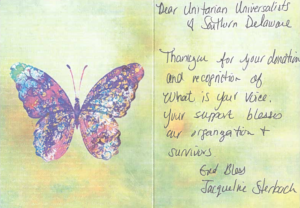 Dear Unitarian Universalists
of Southern Delaware
Thank you for your donation
and recognition of
What is Your Voice.
Your support blesses
our organization +
survivors
God Bless
Jacqueline Sterbach